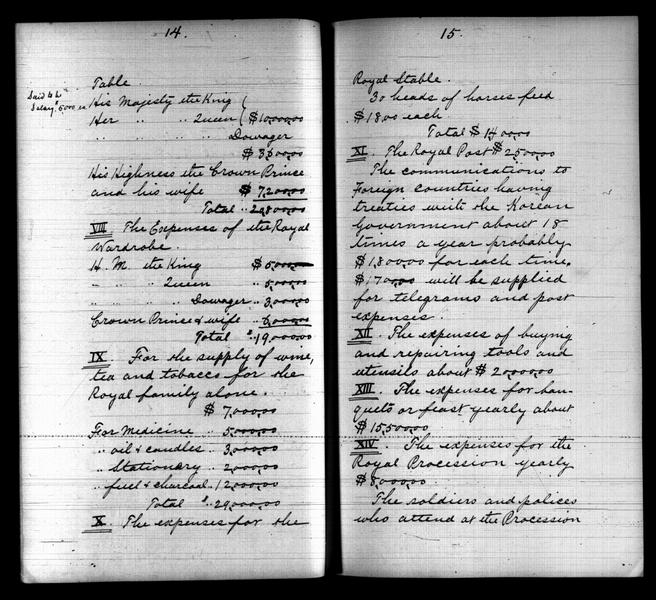 14.
Table.
Said to be
Salary $5,000 ea
His Majesty the King
Her " " Queen $10,000.00
" " " Dowager
$36,00.00
His Highness the Crown Prince
and his wife $7,200.00
Total " 298,00.00
VIII The Expenses of the Royal
Wardrobe.
H. M. the King $5,000.00
" " " Queen " 5,000.00
" " " Dowager " 3,000.00
Crown Prince & wife " 6,000.00
Total " 19,000.00
IX. For the supply of wine,
tea and tobacco for the
Royal family alone.
$7,000.00
For Medicine " 5,000.00
" oil & candles " 3,000.00
" Stationary " 2,000.00
" fuel & charcoal " 12,000.00
Total " 29,000.00
X. The expenses for the
15.
Royal Stable.
30 heads of horses feed
$18.00 each
Total $140.00
XI. The Royal Post $250.00
The communications to
Foreign Countries having
treaties with the Korean
Government about 18
times a year probably
$1,800.00 for each time,
$1,700.00 will be supplied
for telegrams and post
expenses.
XII. The expenses of buying
and repairing tools and
utensils about $20,000.00
XIII. The expenses for ban-
quets or feast yearly about
$15,500.00
XIV. The expenses for the
Royal Procession yearly
$8,000.00
The soldiers and polices
who attend at the Procession